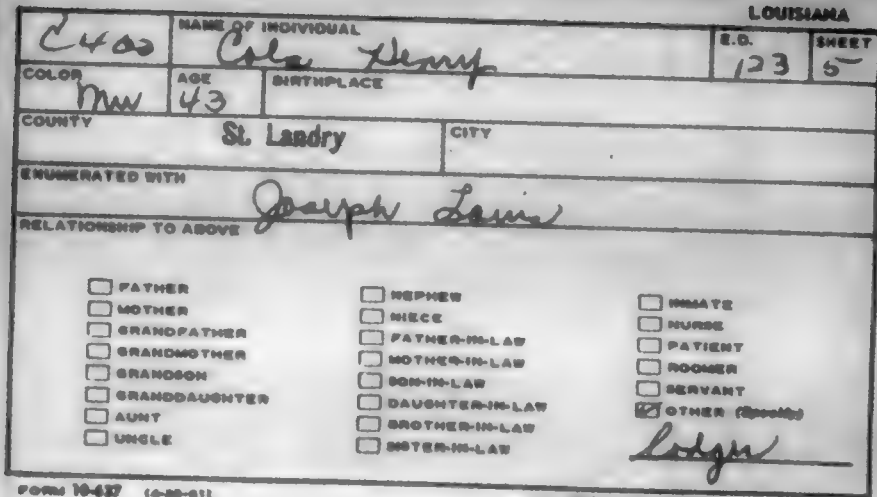 LOUISIANA
C400 NAME OF INDIVIDUAL Cole Henry E.D. 123 SHEET 5
COLOR MW AGE 43 BIRTHPLACE
COUNTY St. Landry CITY
ENUMERATED WITH Joseph Louis
RELATIONSHIP TO ABOVE
FATHER
MOTHER
GRANDFATHER
GRANDMOTHER
GRANDSON
GRANDDAUGHTER
AUNT
UNCLE
NEPHEW
NIECE
FATHER-IN-LAW
MOTHER-IN-LAW
SON-IN-LAW
DAUGHTER-IN-LAW
BROTHER-IN-LAW
SISTER-IN-LAW
INMATE
NURSE
PATIENT
ROOMER
SERVANT
OTHER (Specify)
Lodger
FORM 10-637